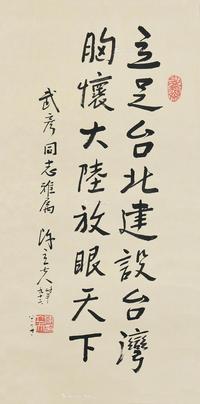 立足台北建設台灣
胸懷大陸放眼天下
武彥同志雅屬 陳立夫